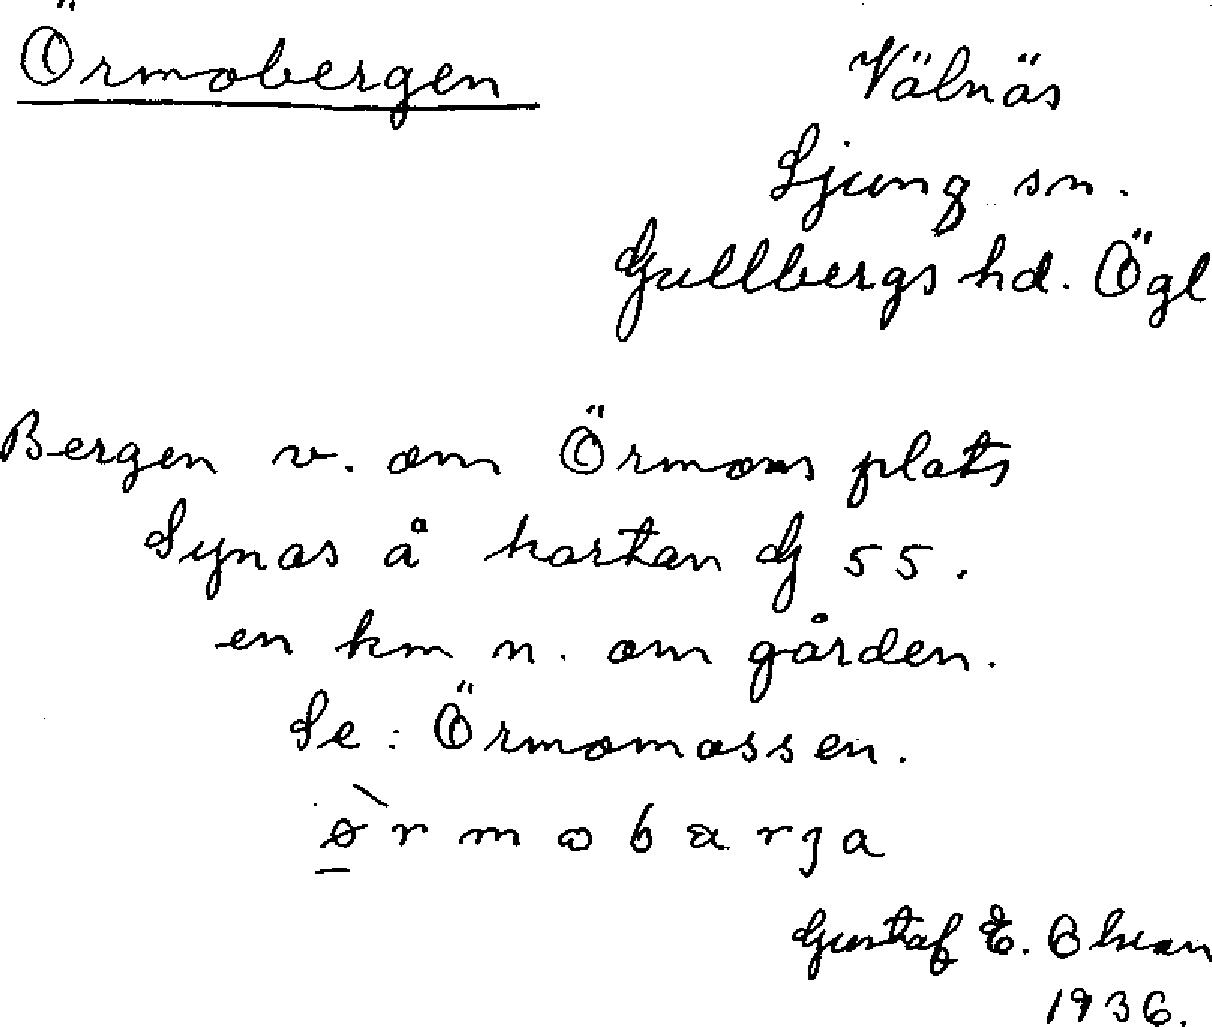 Örmobergen
Välnäs
Ljung sn.
Gullbergs hd. Ögl
Bergen v. om Örmons plats
Synas å kartan G 55.
en km n. om gården.
Se: Örmomossen.
Gustaf E.
1936.